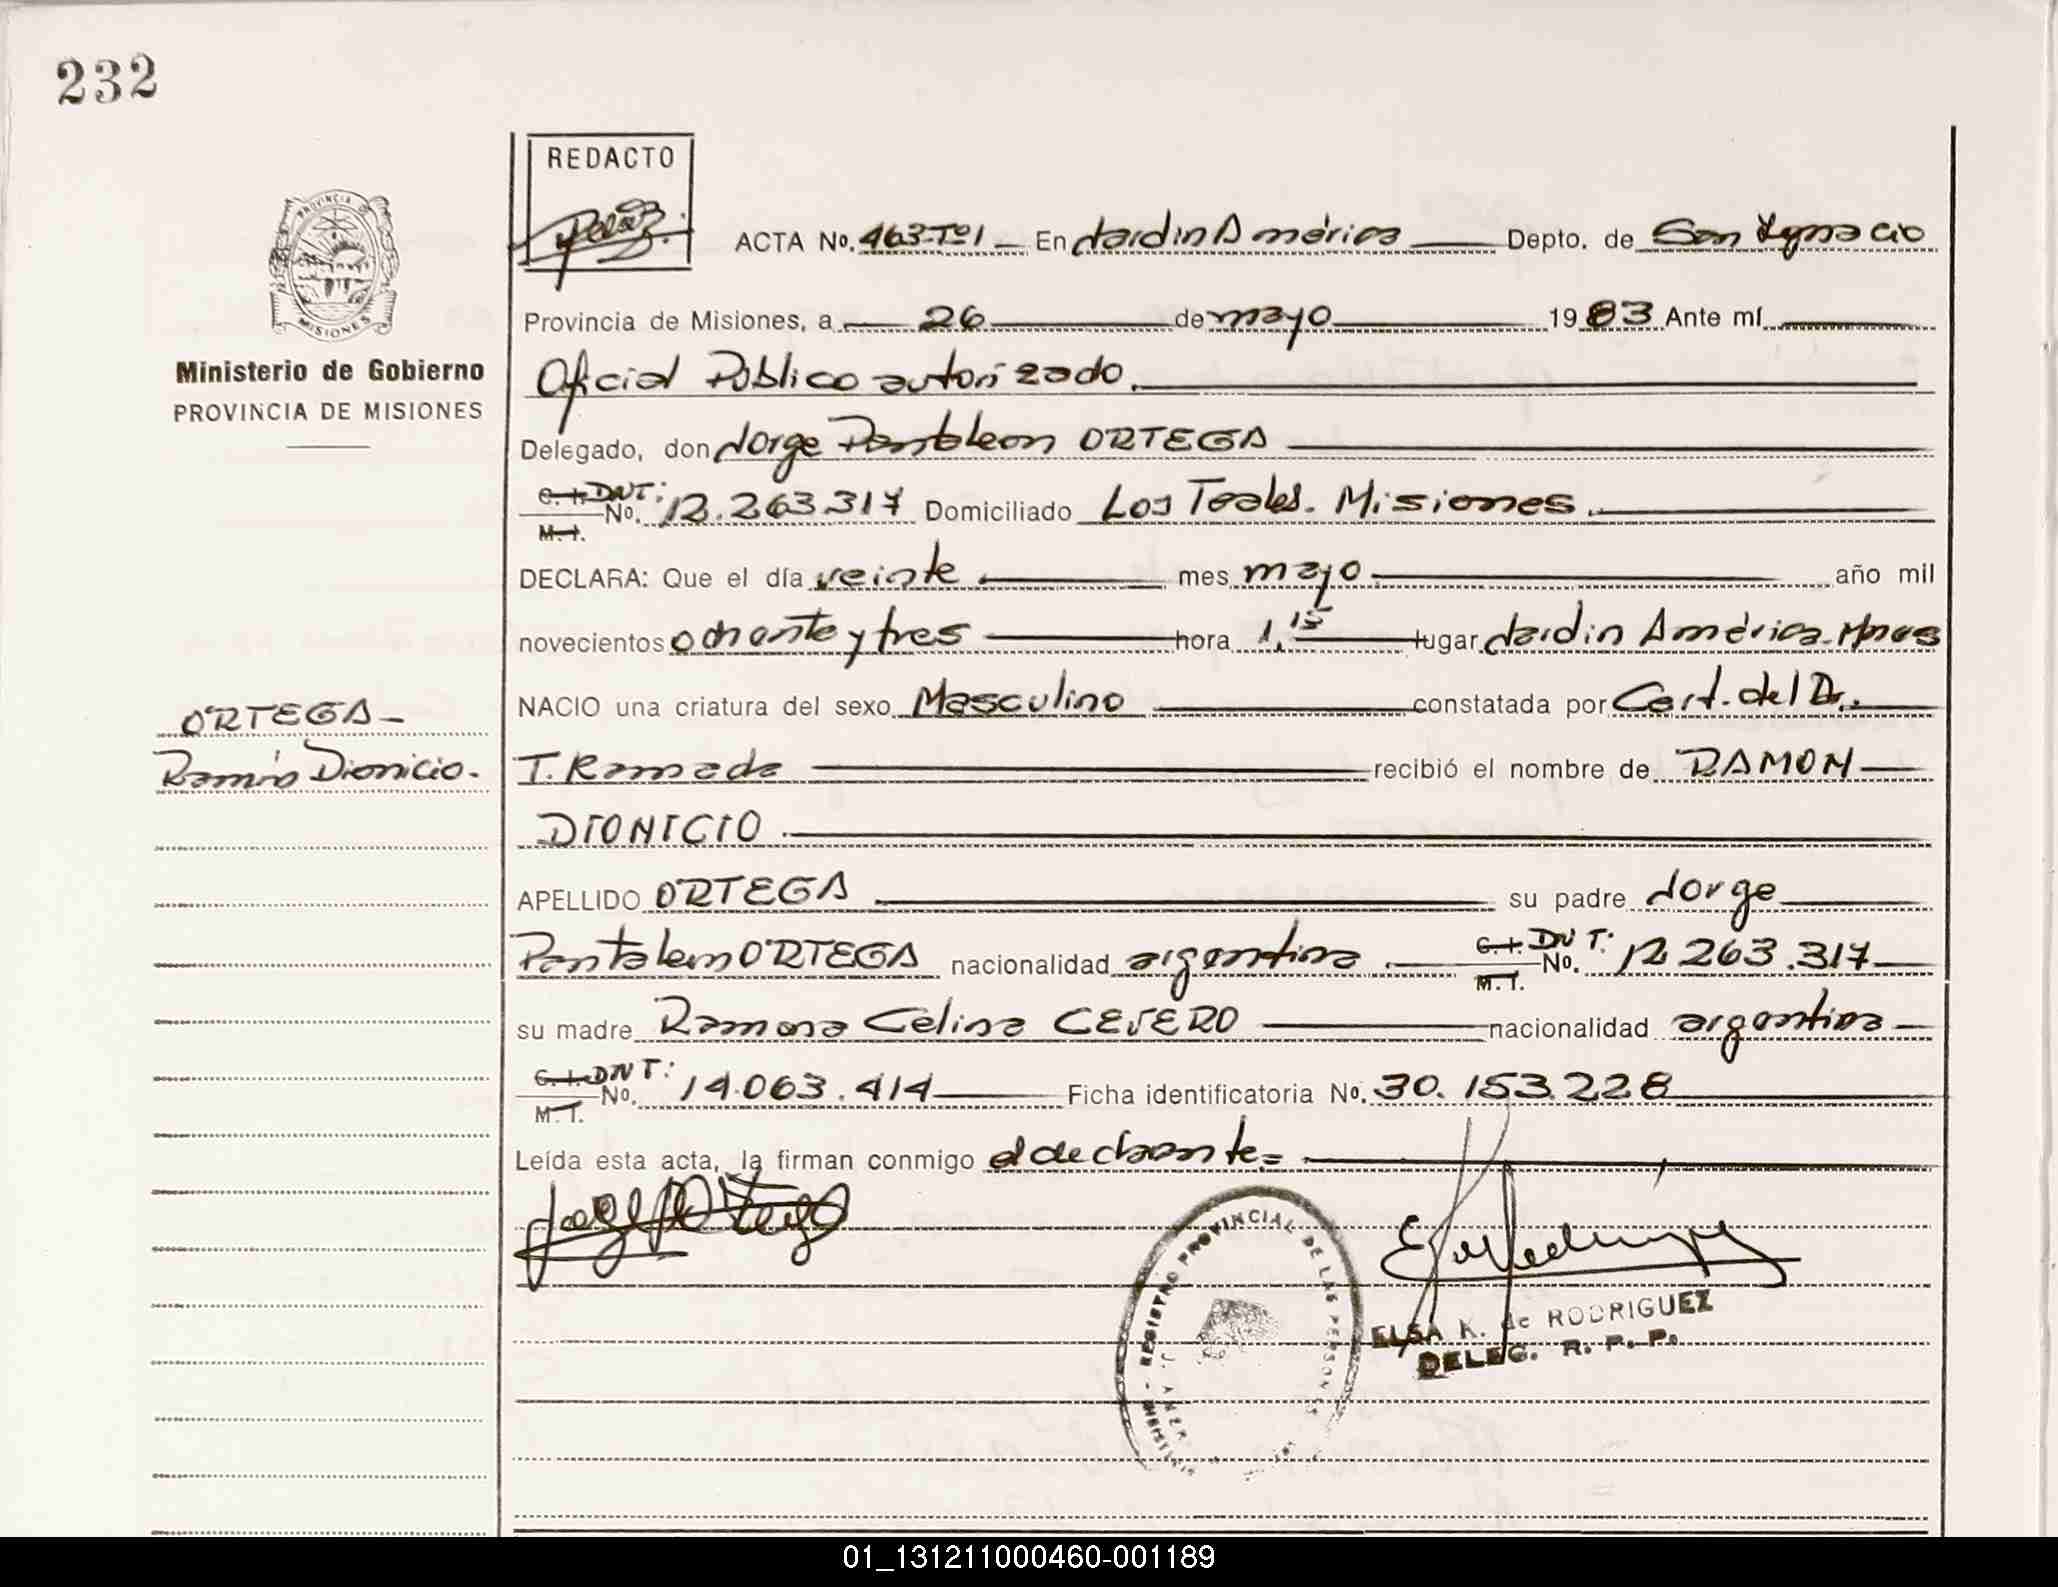 232
REDACTO
PROVINCIA DE
MISIONES
Ministerio de Gobierno
PROVINCIA DE MISIONES
ACTA No. 463-Tº1 En Jardin América Depto. de San Ignacio
Provincia de Misiones, a 26 de mayo 1983 Ante mí
Oficial Público autorizado.
Delegado, don Jorge Pantaleon ORTEGA
C. I. DNI: No. 12.263.317 Domiciliado Los Teales. Misiones.
M. I.
DECLARA: Que el día veinte mes mayo año mil
novecientos ochenta y tres hora 1,15 lugar Jardin América. Mnes
NACIO una criatura del sexo Masculino constatada por Cert. del Dr.
ORTEGA-
Ramón Dionicio.
T. Ramada recibió el nombre de RAMON
DIONICIO
APELLIDO ORTEGA su padre Jorge
Pantaleon ORTEGA nacionalidad argentina C. I. DNI: No. 12.263.317
M. I.
su madre Ramona Celina CEVERO nacionalidad argentina
C. I. DNI: No. 14.063.414 Ficha identificatoria No. 30.153.228
M. I.
Leída esta acta, la firman conmigo el declarante.=
REGISTRO PROVINCIAL DE LAS PERSONAS
ELSA K. de RODRIGUEZ
DELEG. R. P. P.
01_131211000460-001189